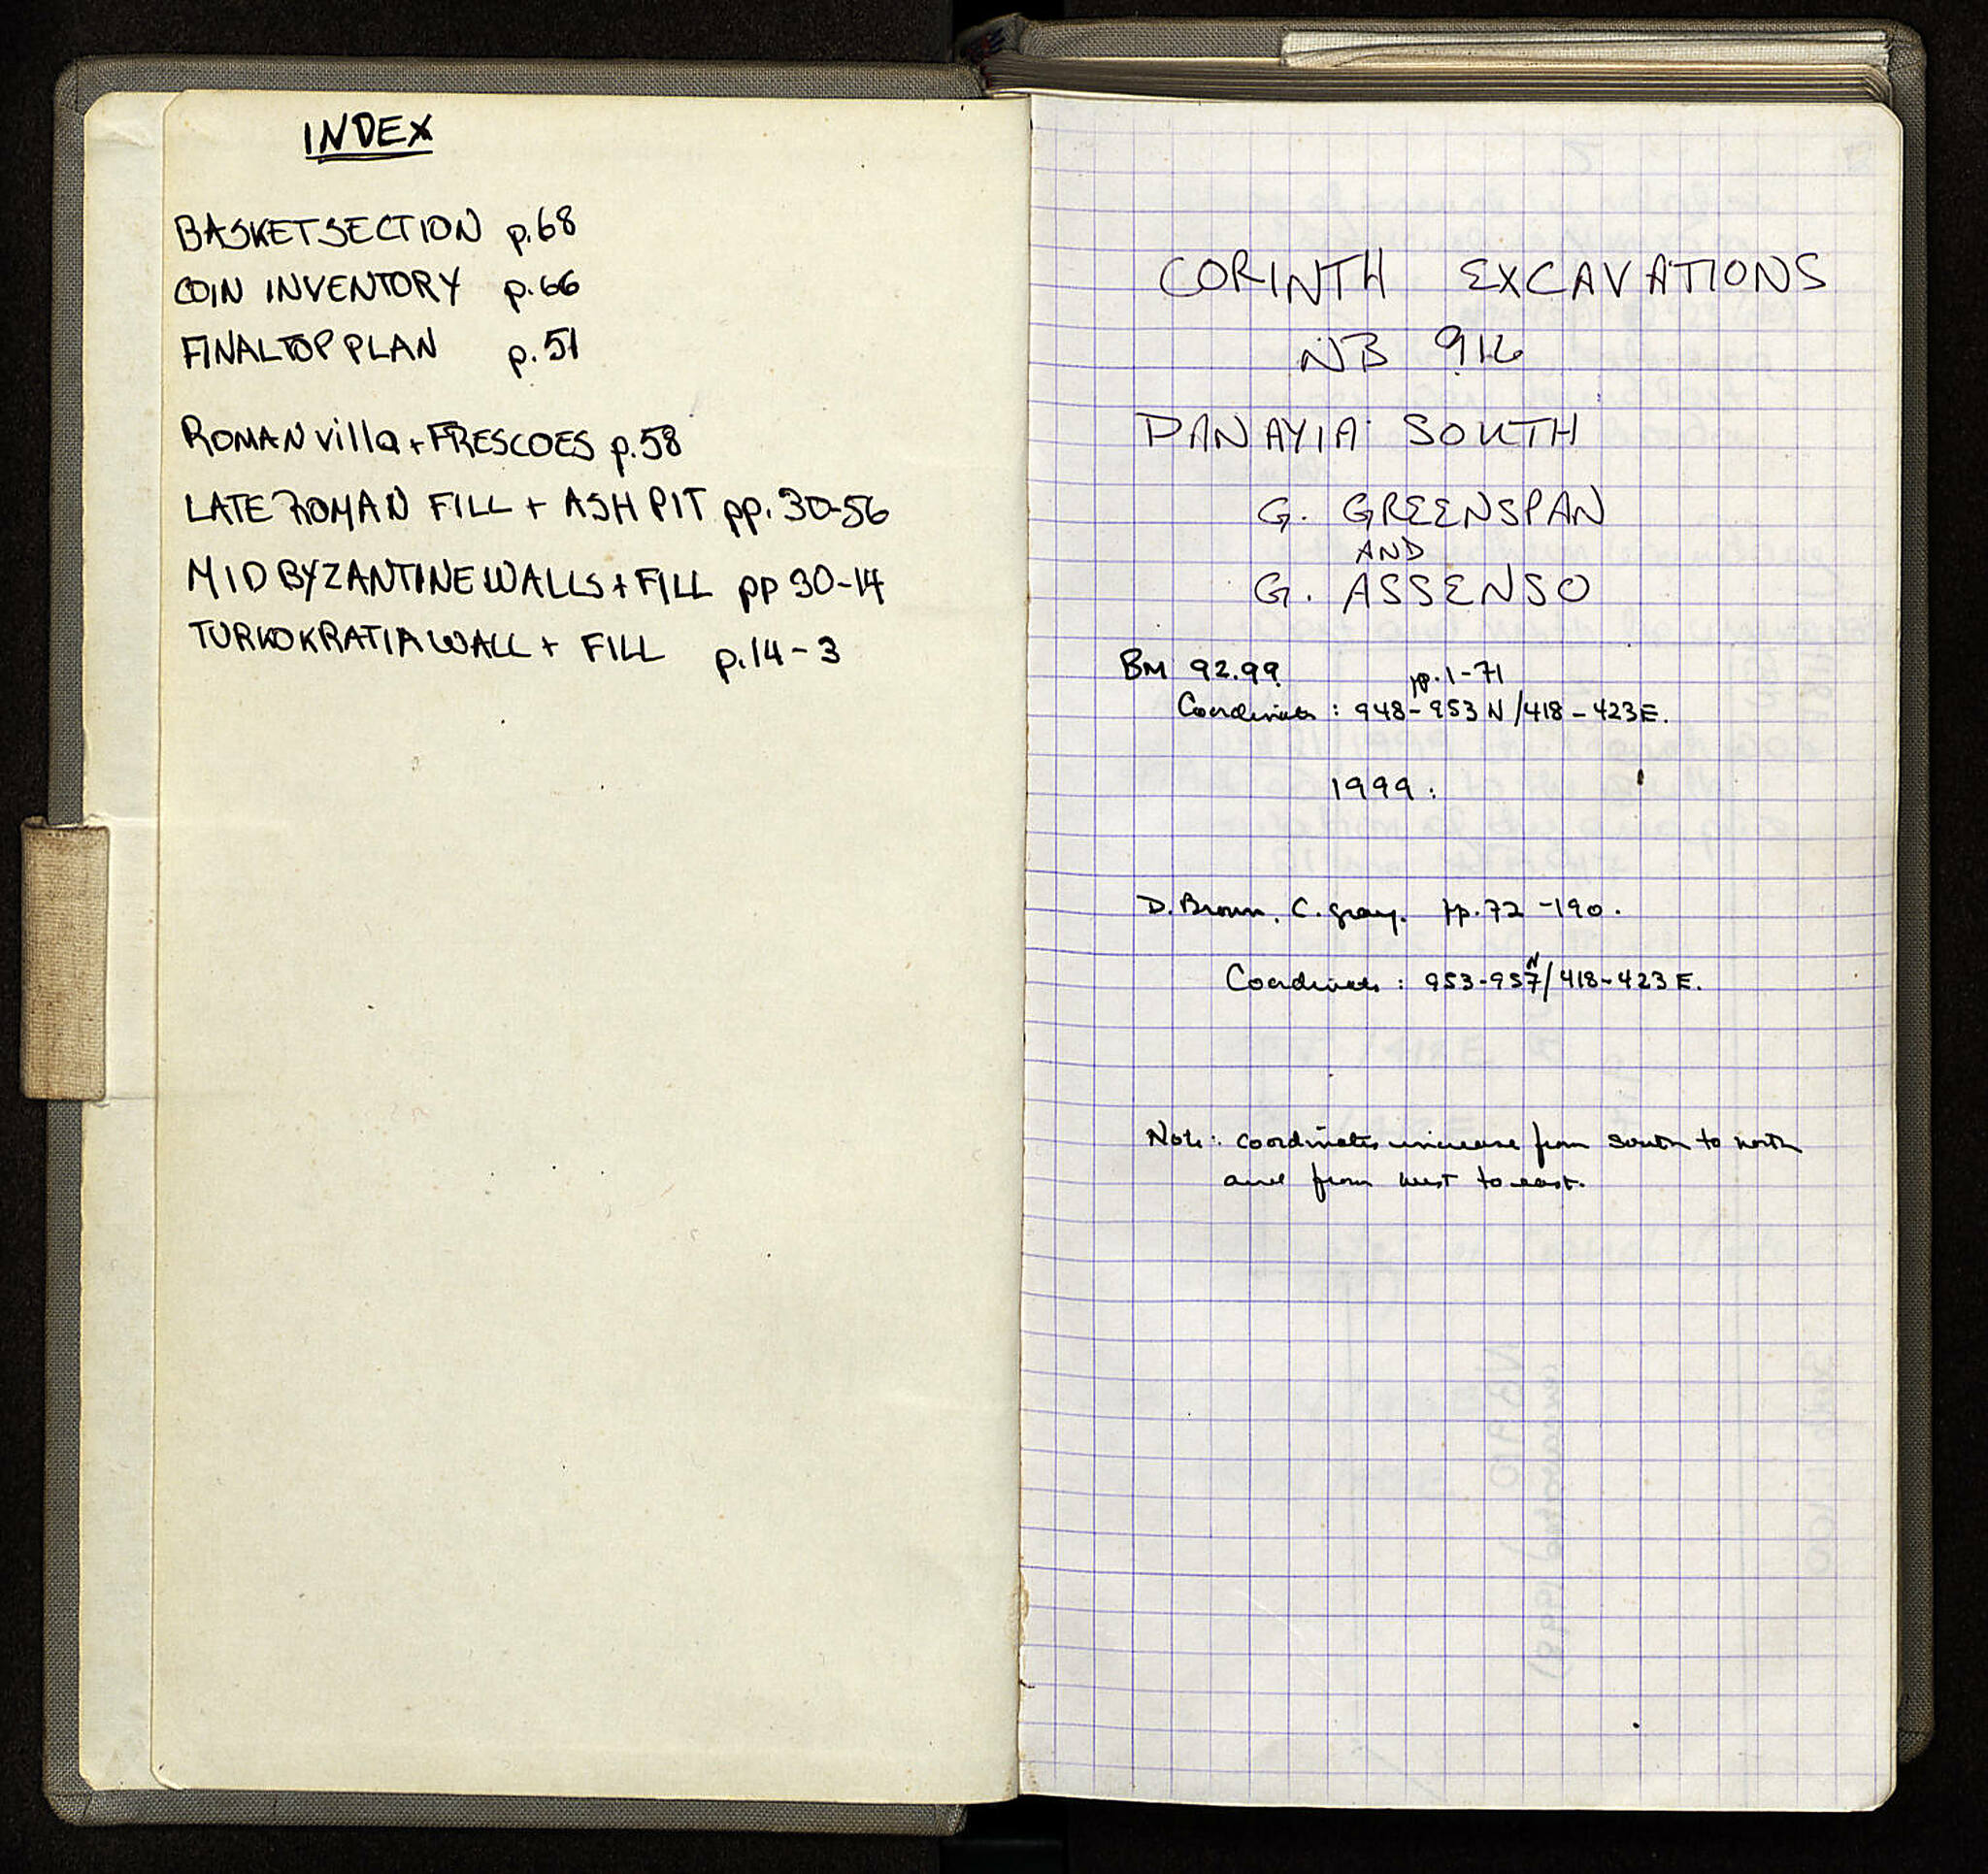 INDEX
BASKET SECTION p.68
COIN INVENTORY p.66
FINAL TOP PLAN p.51
ROMAN villa + FRESCOES p.58
LATE ROMAN FILL + ASH PIT pp. 30-56
MID BYZANTINE WALLS + FILL pp 30-14
TURKOKRATIA WALL + FILL p.14-3
CORINTH EXCAVATIONS
NB 916
PANAYIA SOUTH
G. GREENSPAN
AND
G. ASSENSO
BM 92.99 pp. 1-71
Coordinates : 948-953 N/418-423E.
1999.
D. Brown, C. Gray. pp. 72-190.
Coordinates : 953-957N/418-423E.
Note: coordinates increase from south to north
and from west to east.